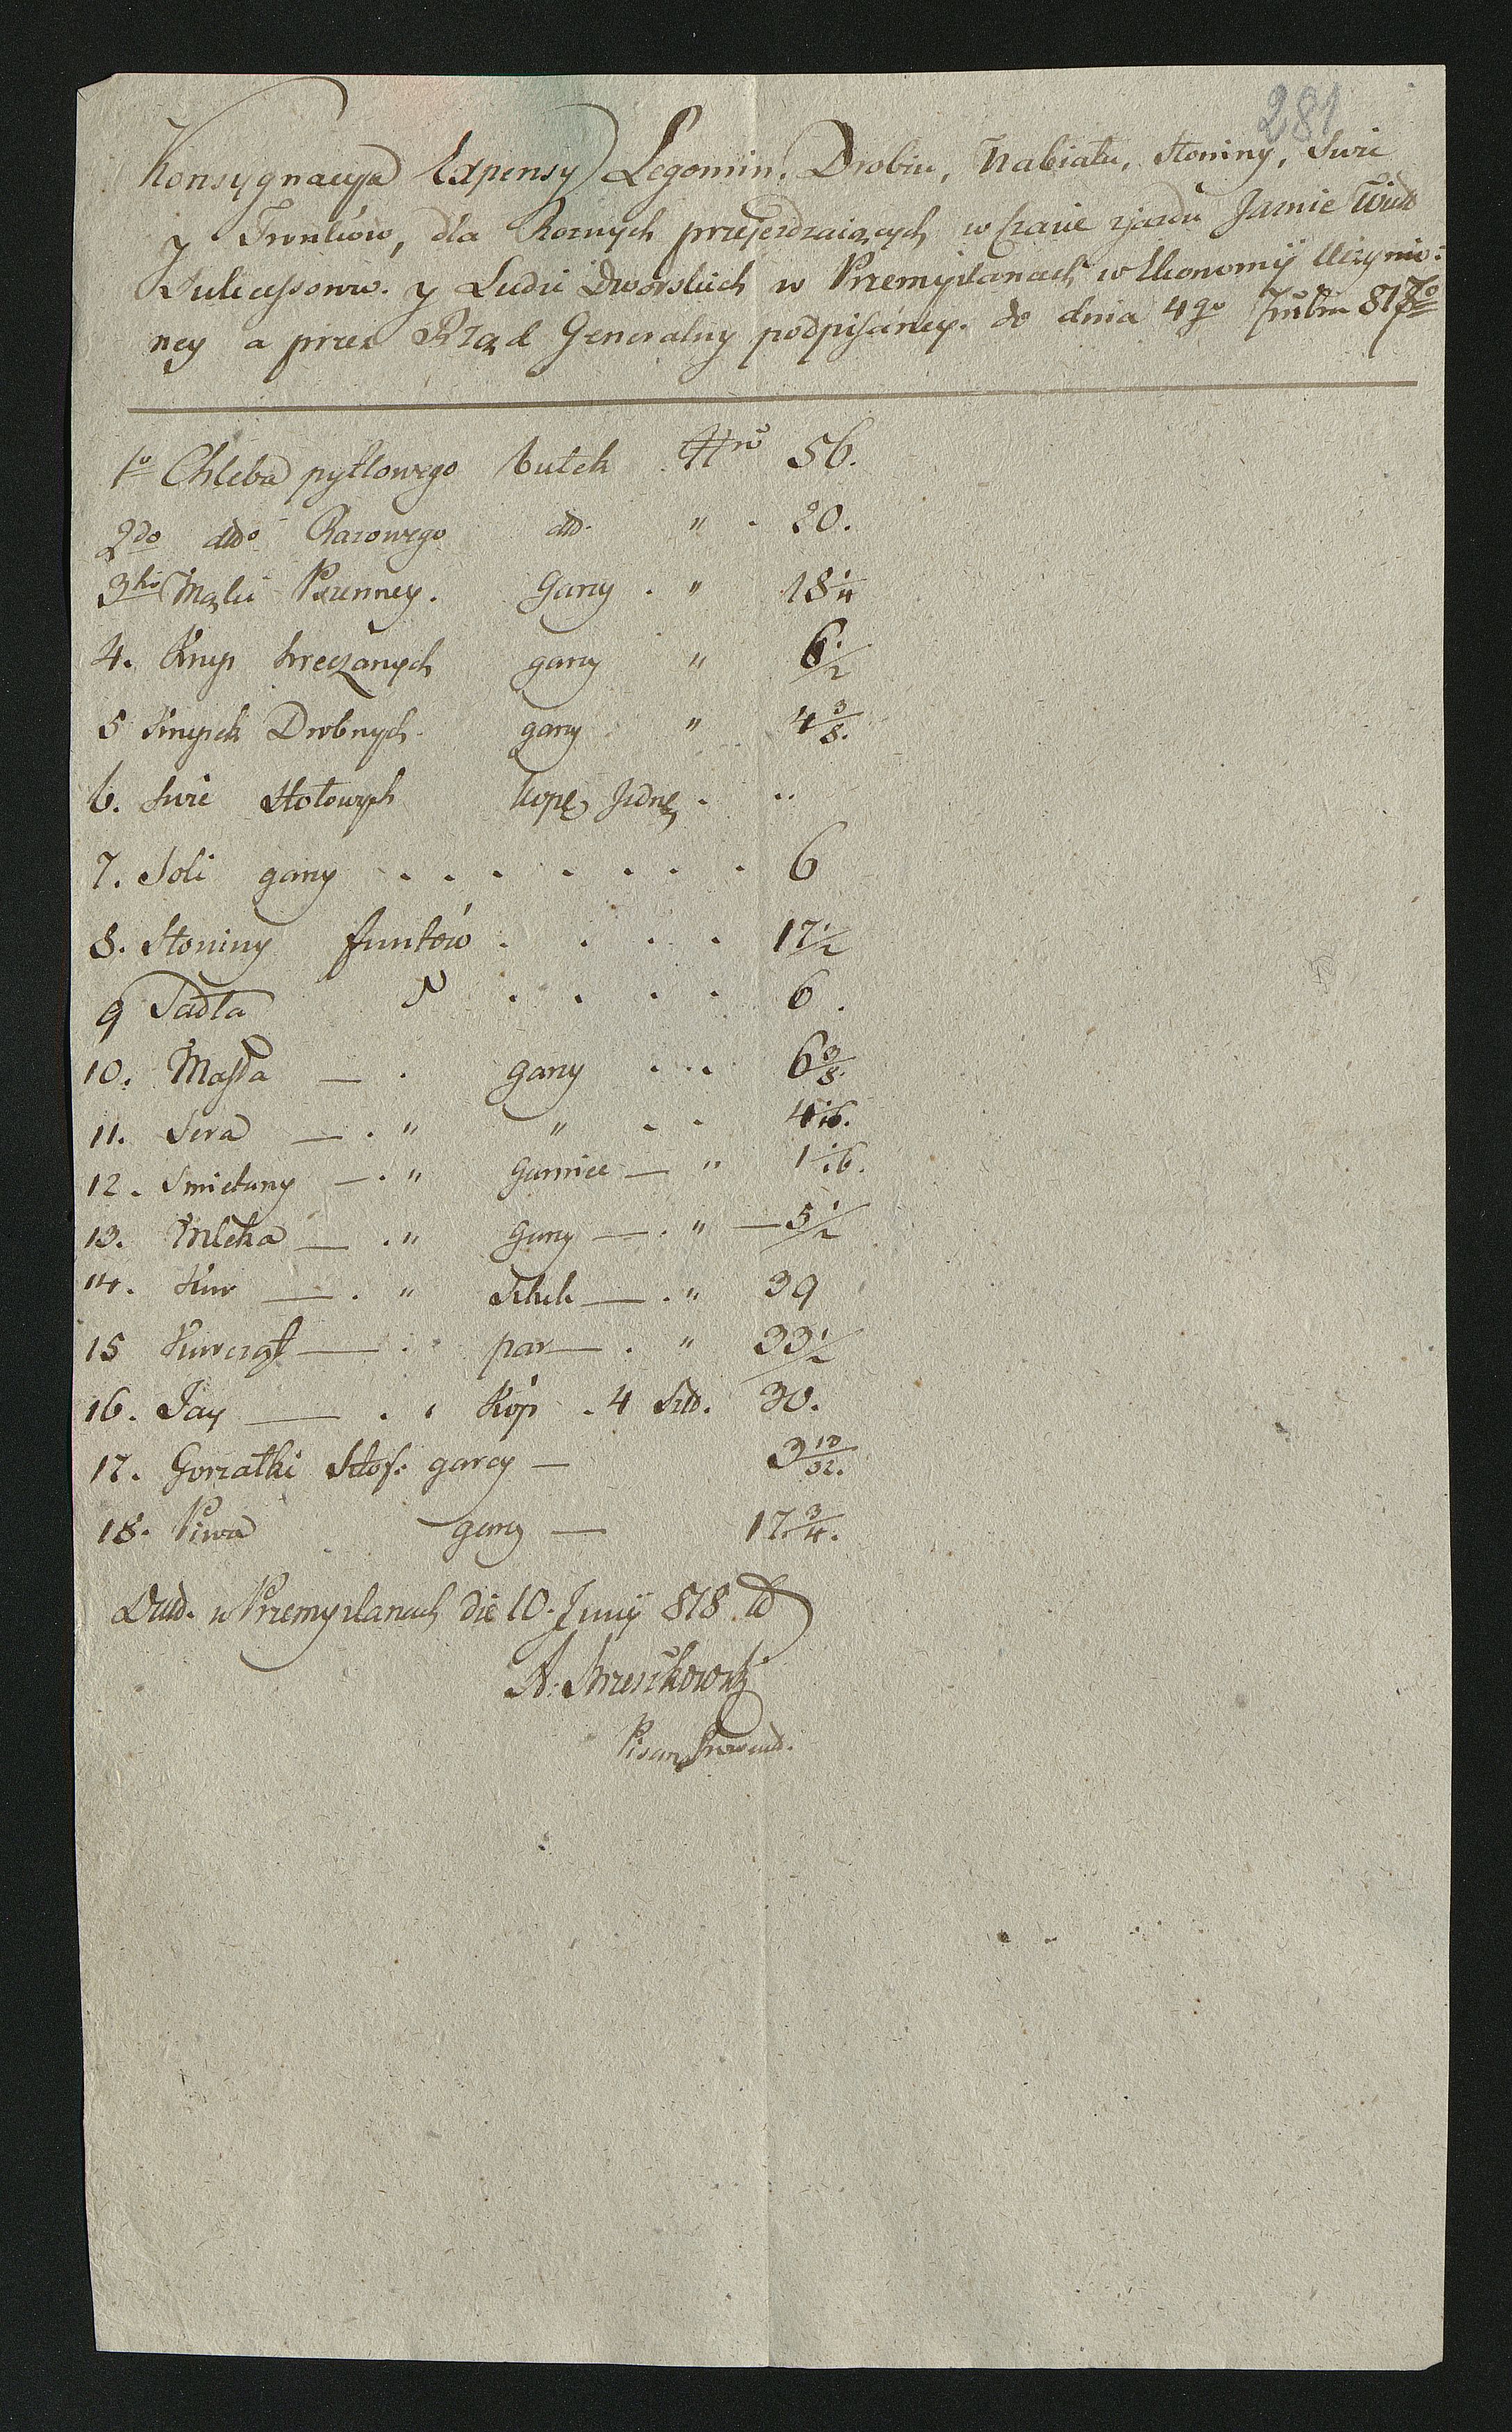 281
Konsygnacya Expensy Legomin, Drobiu, Nabiału, Słoniny, Swic
y Trunków, dla Roznych przejezdzaiących w Czasie zjazdu Jasnie Wiel
Sukcessorow. y Ludzi Dworskich w Przemyslanach w Ekonomij Uczynio:
ney a przez Rząd Generalny podpisaney. do dnia 4go
1o Chleba pytlowego bułek Nro 56.
2do dtto Razowego dtto " . 20.
3tio Mąki Pszenney. Garcy . " 18 1/4
4. Krup hreczanych garcy " 6 1/2
5 Krupek Drobnych garcy " 4 3/8.
6. Swic Stołowych kopę Jednę . ..
7. Soli garcy . . . . . . . 6
8. Słoniny funtów . . . . 17 1/2
9 Sadła . . . . 6 .
10. Masła — . garcy . .. 6 3/8.
11. Sera — . " " . . 4 1/16.
12. Smietany — . " Garniec — " 1 1/16.
13. Mleka — . " Garcy — . " — 5 1/2
14. Kur — . " Sztuk — . " 39
15 Kurcząt — . par — . " 33 1/2
16. Jay — . . Kop . 4 Szt. 30.
17. Gorzałki Szłof: garcy — 3 10/32.
18. Piwa garcy — 17 3/4.
Datt. w Przemyslanach die 10. Junij 818
Pisarz Prowent.